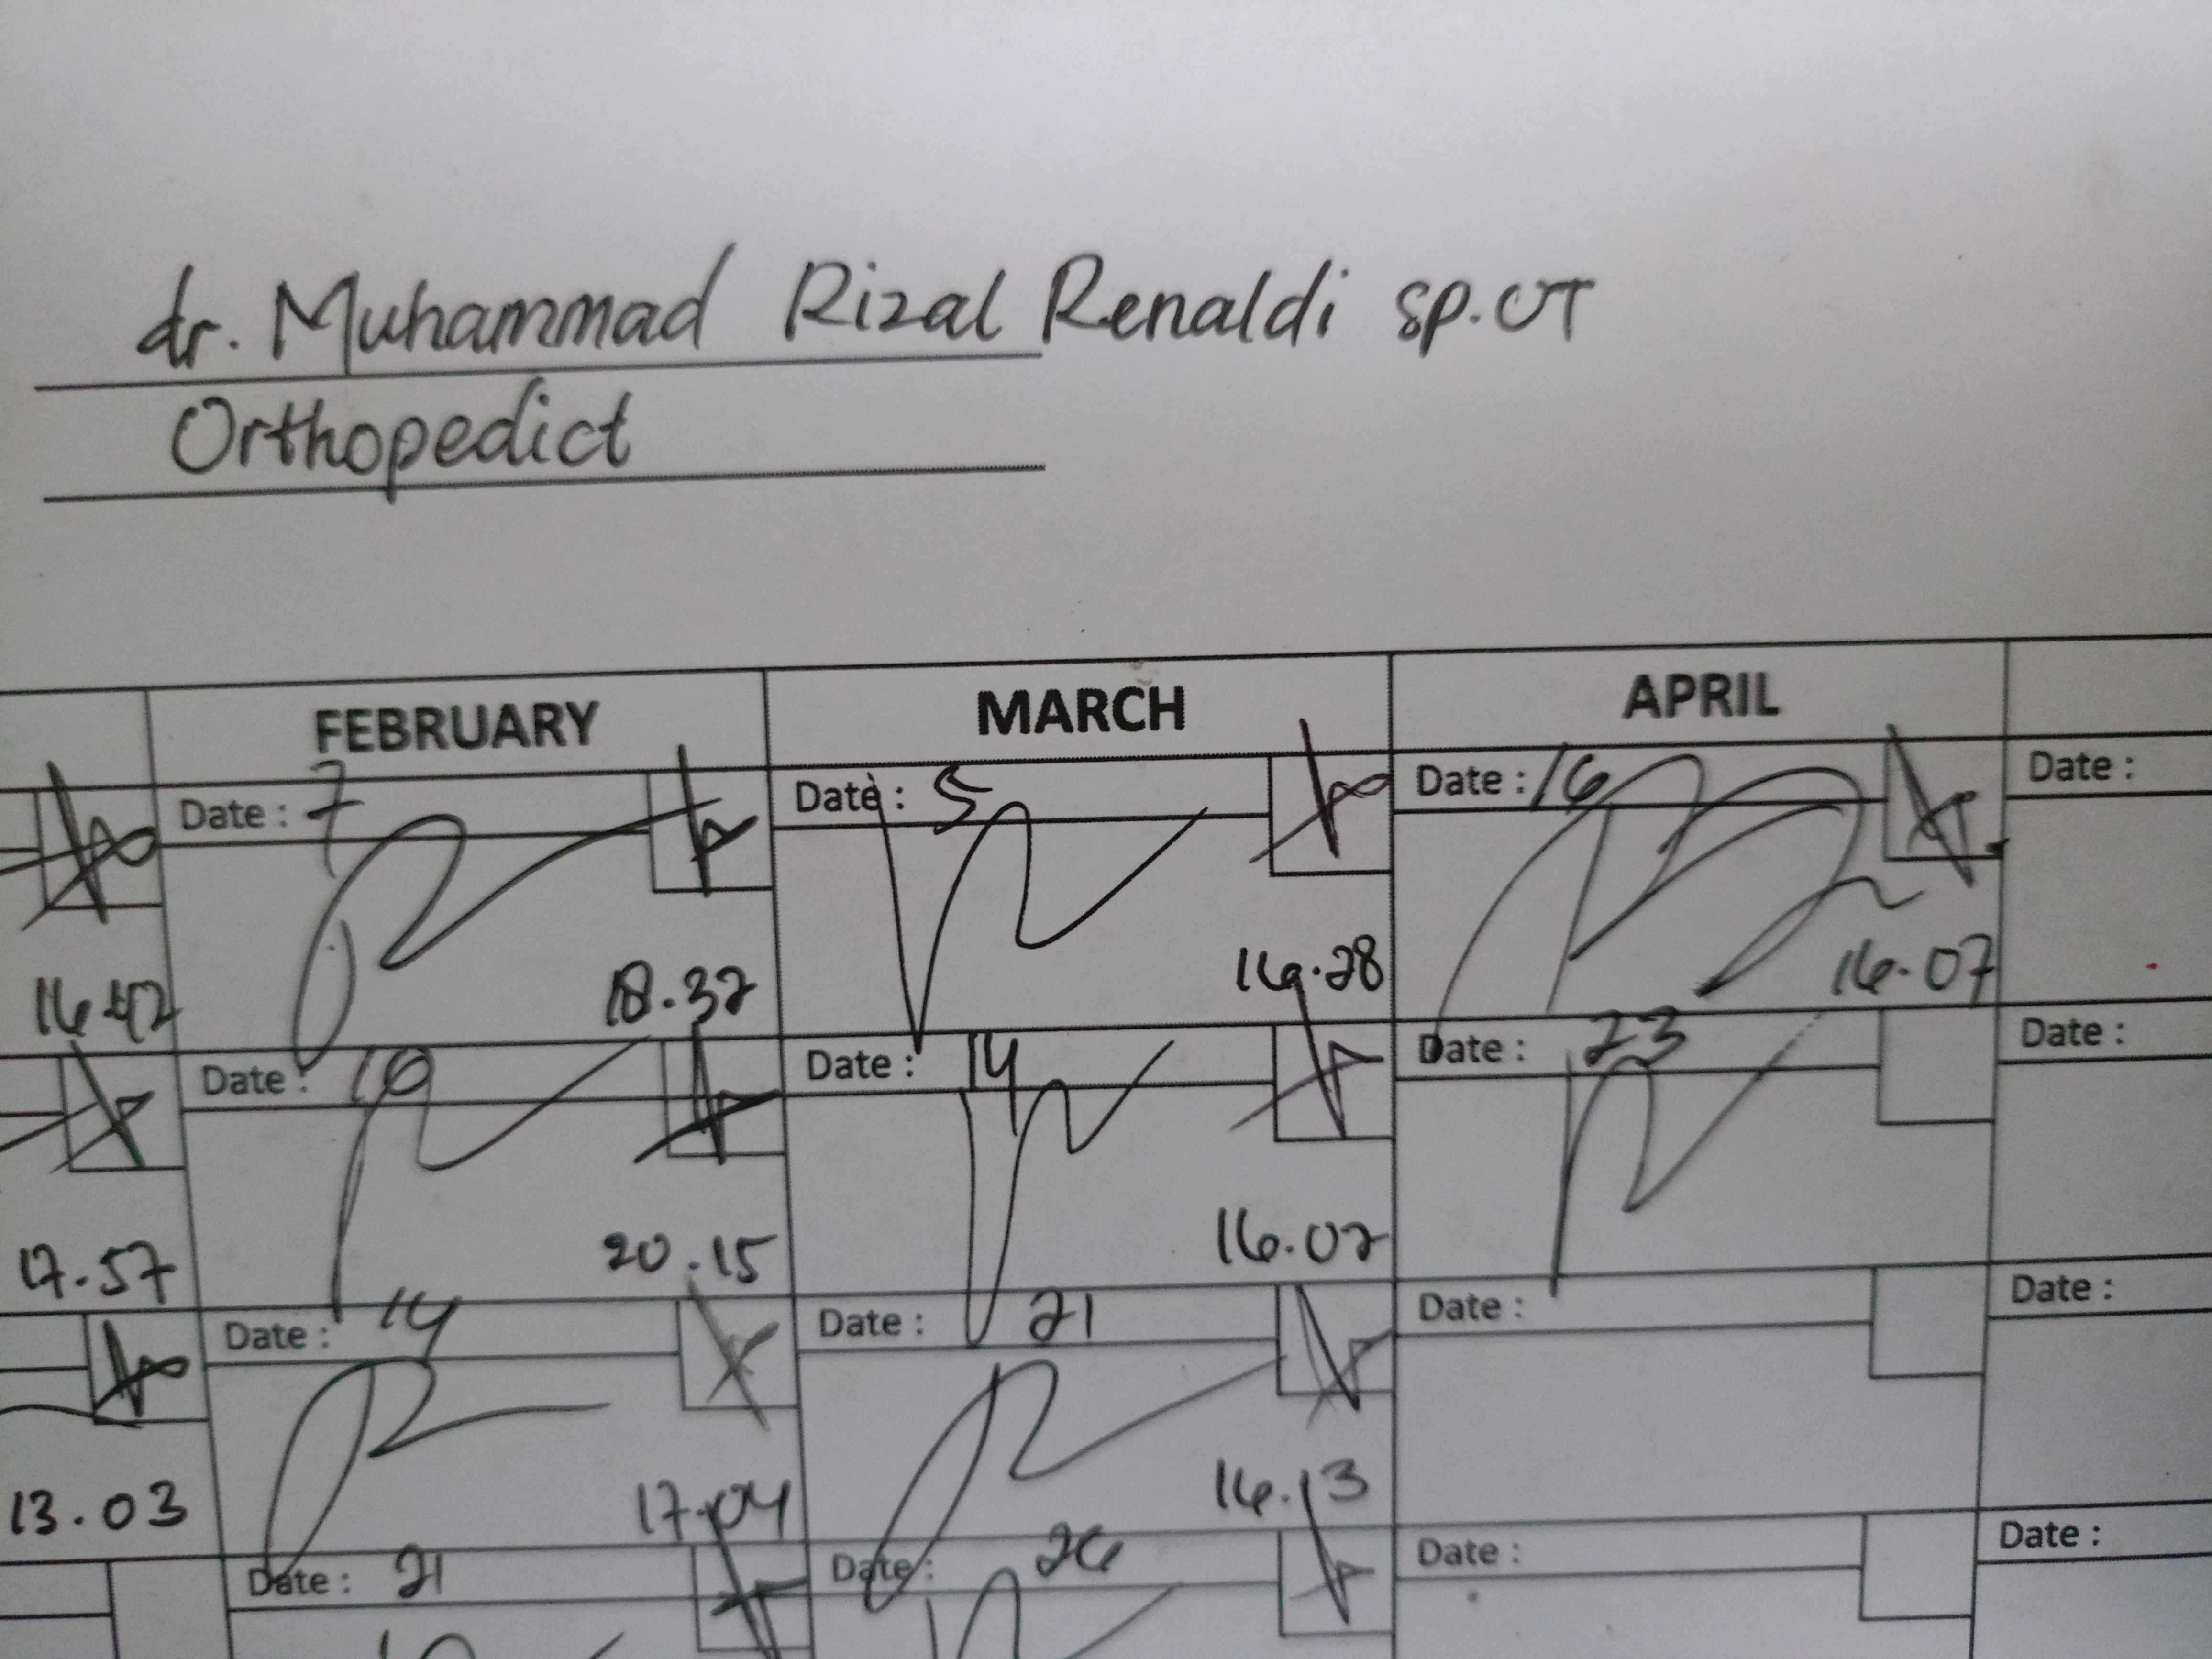 dr. Muhammad Rizal Renaldi sp.OT
Orthopedict
FEBRUARY MARCH APRIL
Date : 7 Date : 5 Date : 16 Date :
16.42 18.32 16.28 16.07
Date : 10 Date : 14 Date : 23 Date :
17.57 20.15 16.02
Date : 14 Date : 21 Date : Date :
13.03 17.04 16.13
Date : 21 Date : 26 Date : Date :